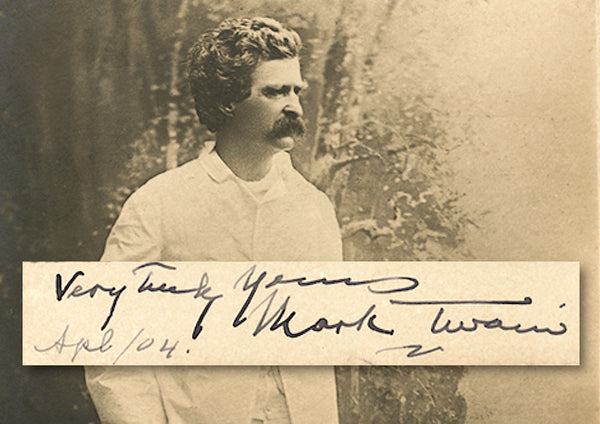 Very Truly Yours
Mark Twain
Apl/04.